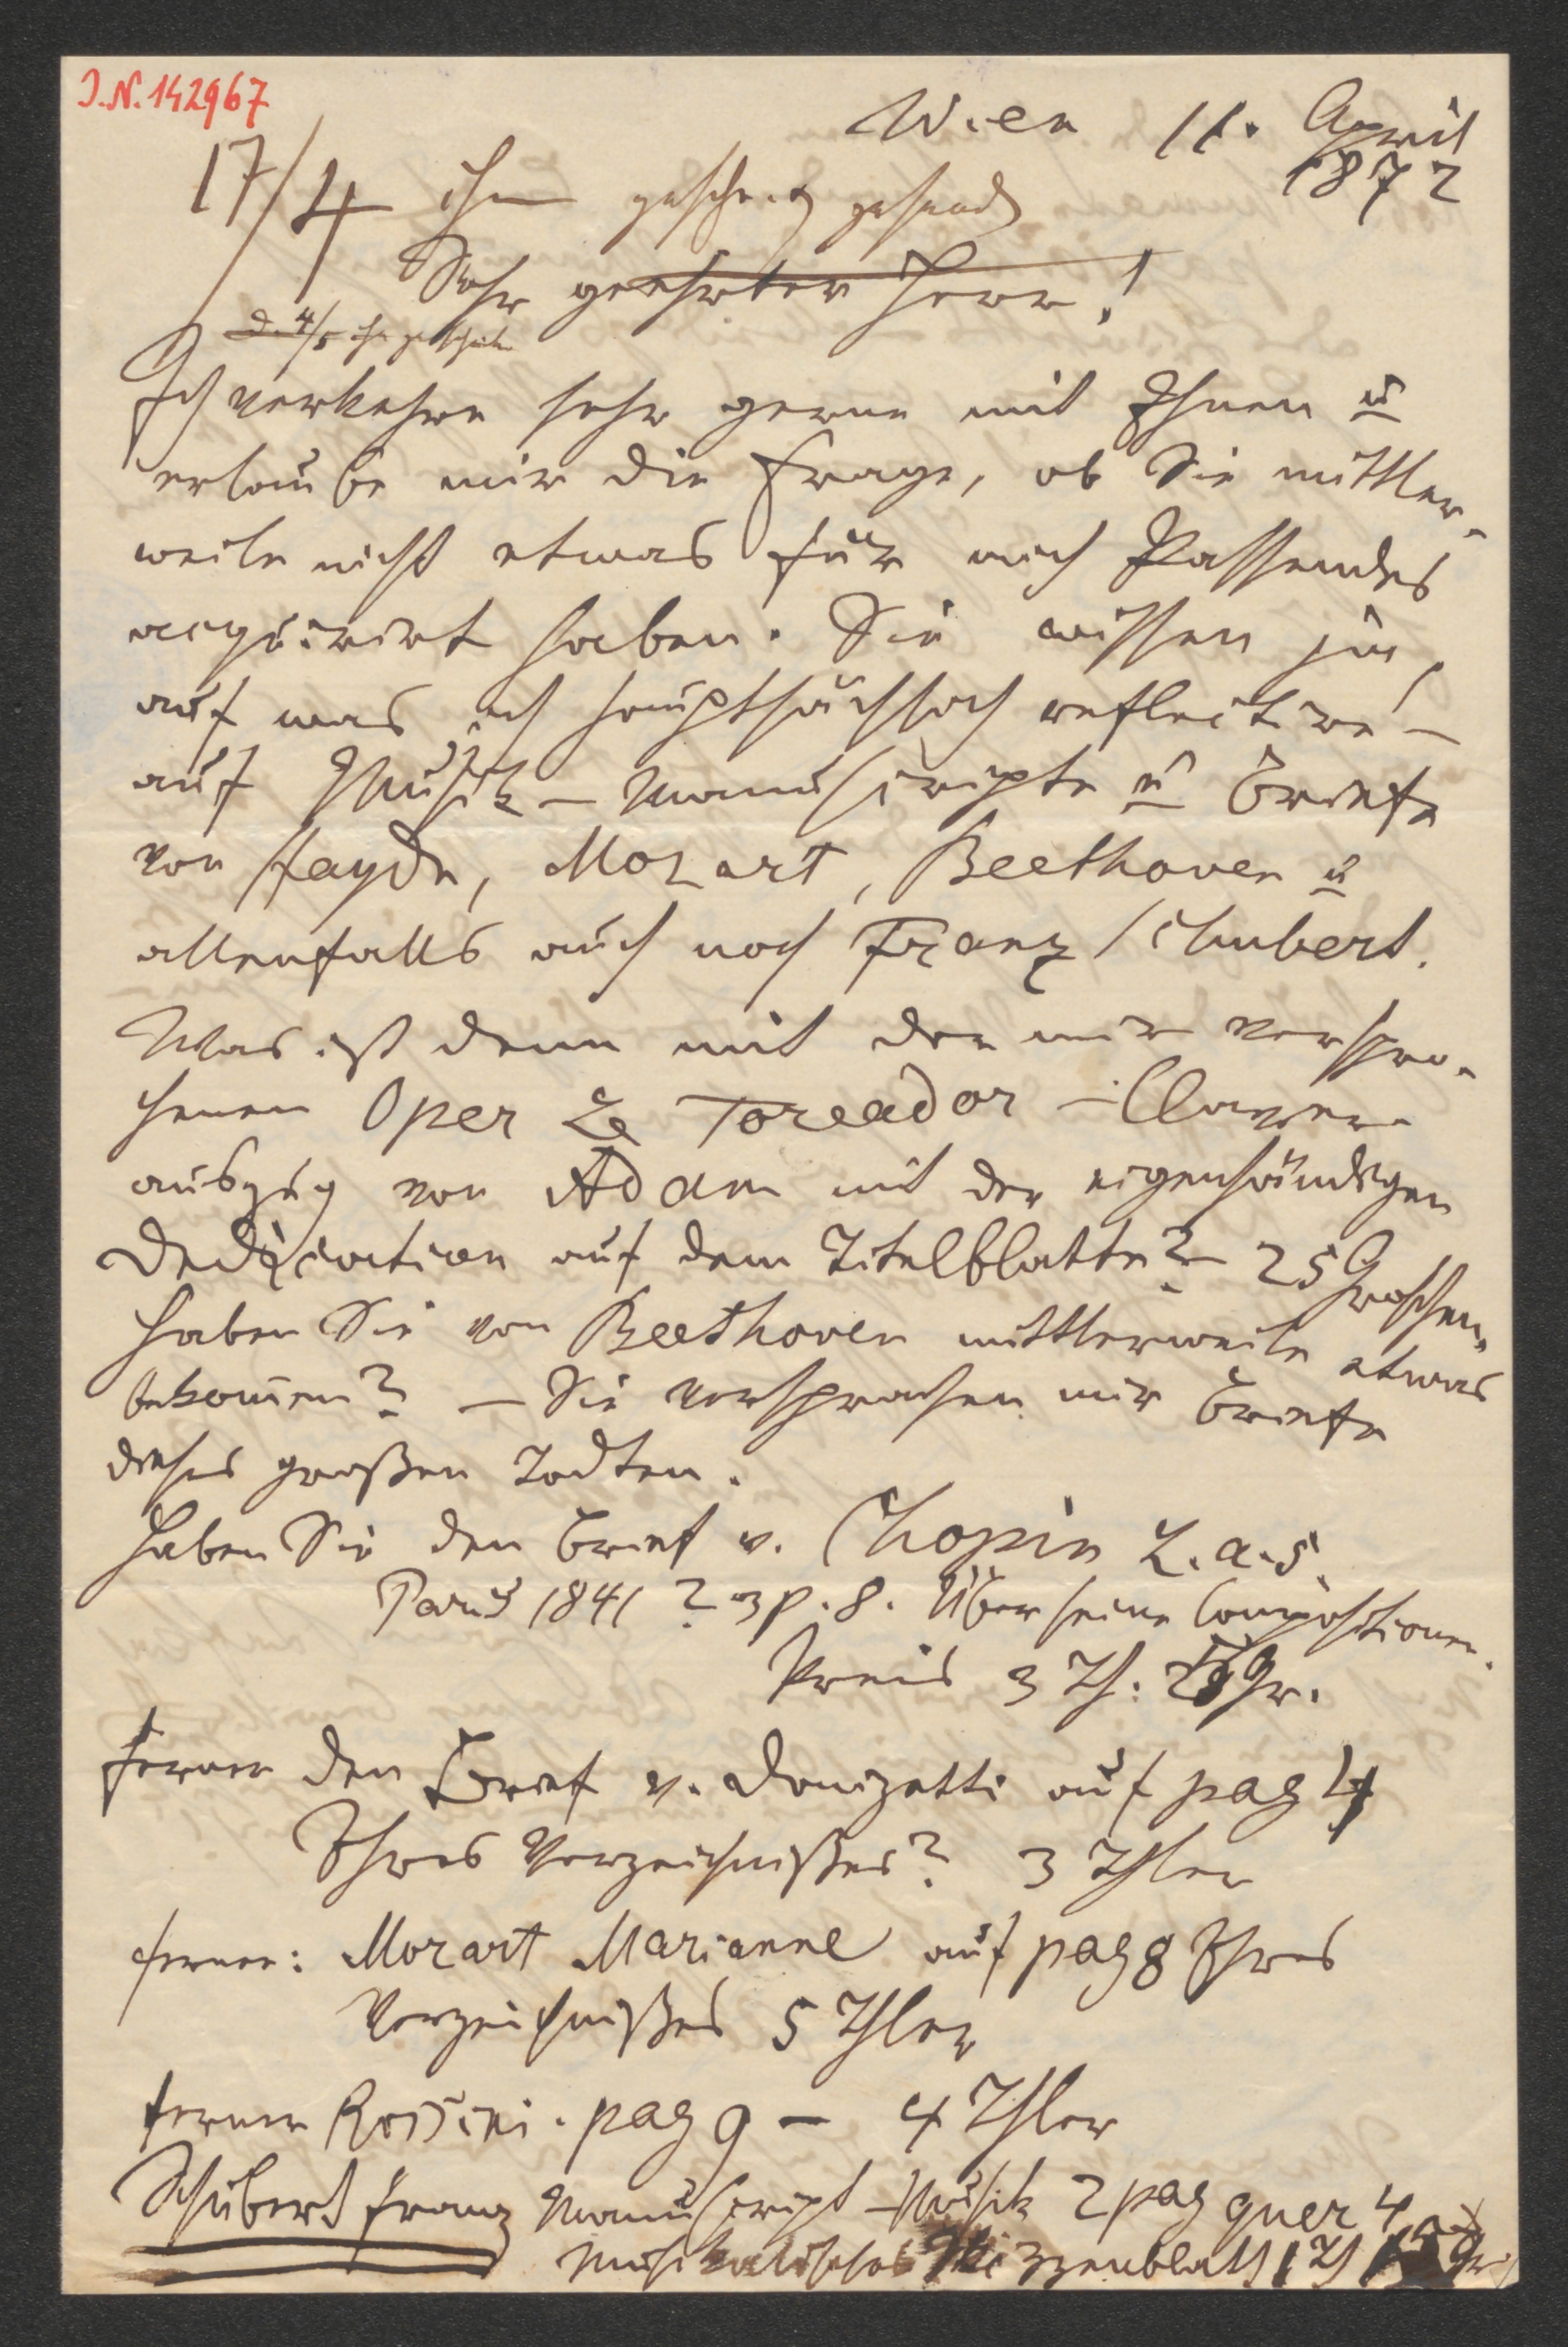 I.N. 142967
Wien 11. April
1872
17/4 ihm gesandt
Sehr geehrter Herr!
D. 4/5
Ich verkehre sehr gerne mit Ihnen u
erlaube mir die Frage, ob Sie mittler-
weile nicht etwas für mich Passendes
acquirirt haben. Sie wissen ja,
auf was ich hauptsächlich reflectire –
auf Musik-Manuscripte u Briefe
von Haydn, Mozart, Beethoven u
allenfalls auch noch Franz Schubert.
Was ist denn mit der mir verspro-
chenen Oper Le Toreador – Clavier-
auszug von Adam mit der eigenhändigen
Dedication auf dem Titelblatte? – 25 Groschen.
Haben Sie von Beethoven mittlerweile etwas
bekom̄en? – Sie versprachen mir Briefe
dieses großen Todten.
Haben Sie den Brief v. Chopin L.a.s.
Paris 1841? 3 p. 8. Über seine Compositionen.
Preis 3 Th: Gr.
Ferner den Brief v. Donizetti auf pag 4
Ihres Verzeichnißes? 3 Thler
ferner: Mozart Marianne auf pag 8 Ihres
Verzeichnißes 5 Thler
ferner Rossini. pag 9 – 4 Thler
Schubert Franz Manuscript-Musik 2 pag quer 4
Musikalisches Skizzenblatt 1 Th